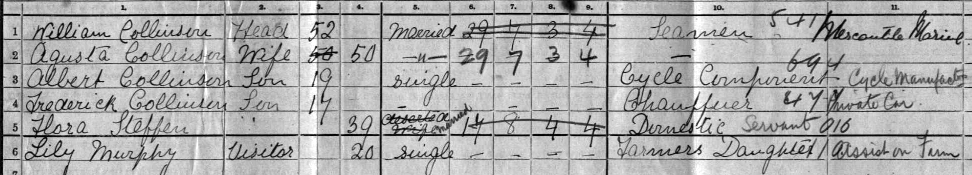 1. 2. 3. 4. 5. 6. 7. 8. 9. 10. 11.
1 William Collinson Head 52 Married 29 7 3 4 Seamen 541 Mercantile Marine
2 Agusta Collinson Wife 50 50 —"— 29 7 3 4 —
3 Albert Collinson Son 19 single — — — — Cycle Component 694 Cycle Manufactor
4 Frederick Collinson Son 17 — — — — — Chauffeur 477 Private Car
5 Flora Steffen 39 deserted wife married 14 8 4 4 Domestic Servant 010
6 Lily Murphy Visitor 20 single — — — — Farmers Daughter / Assist on Farm